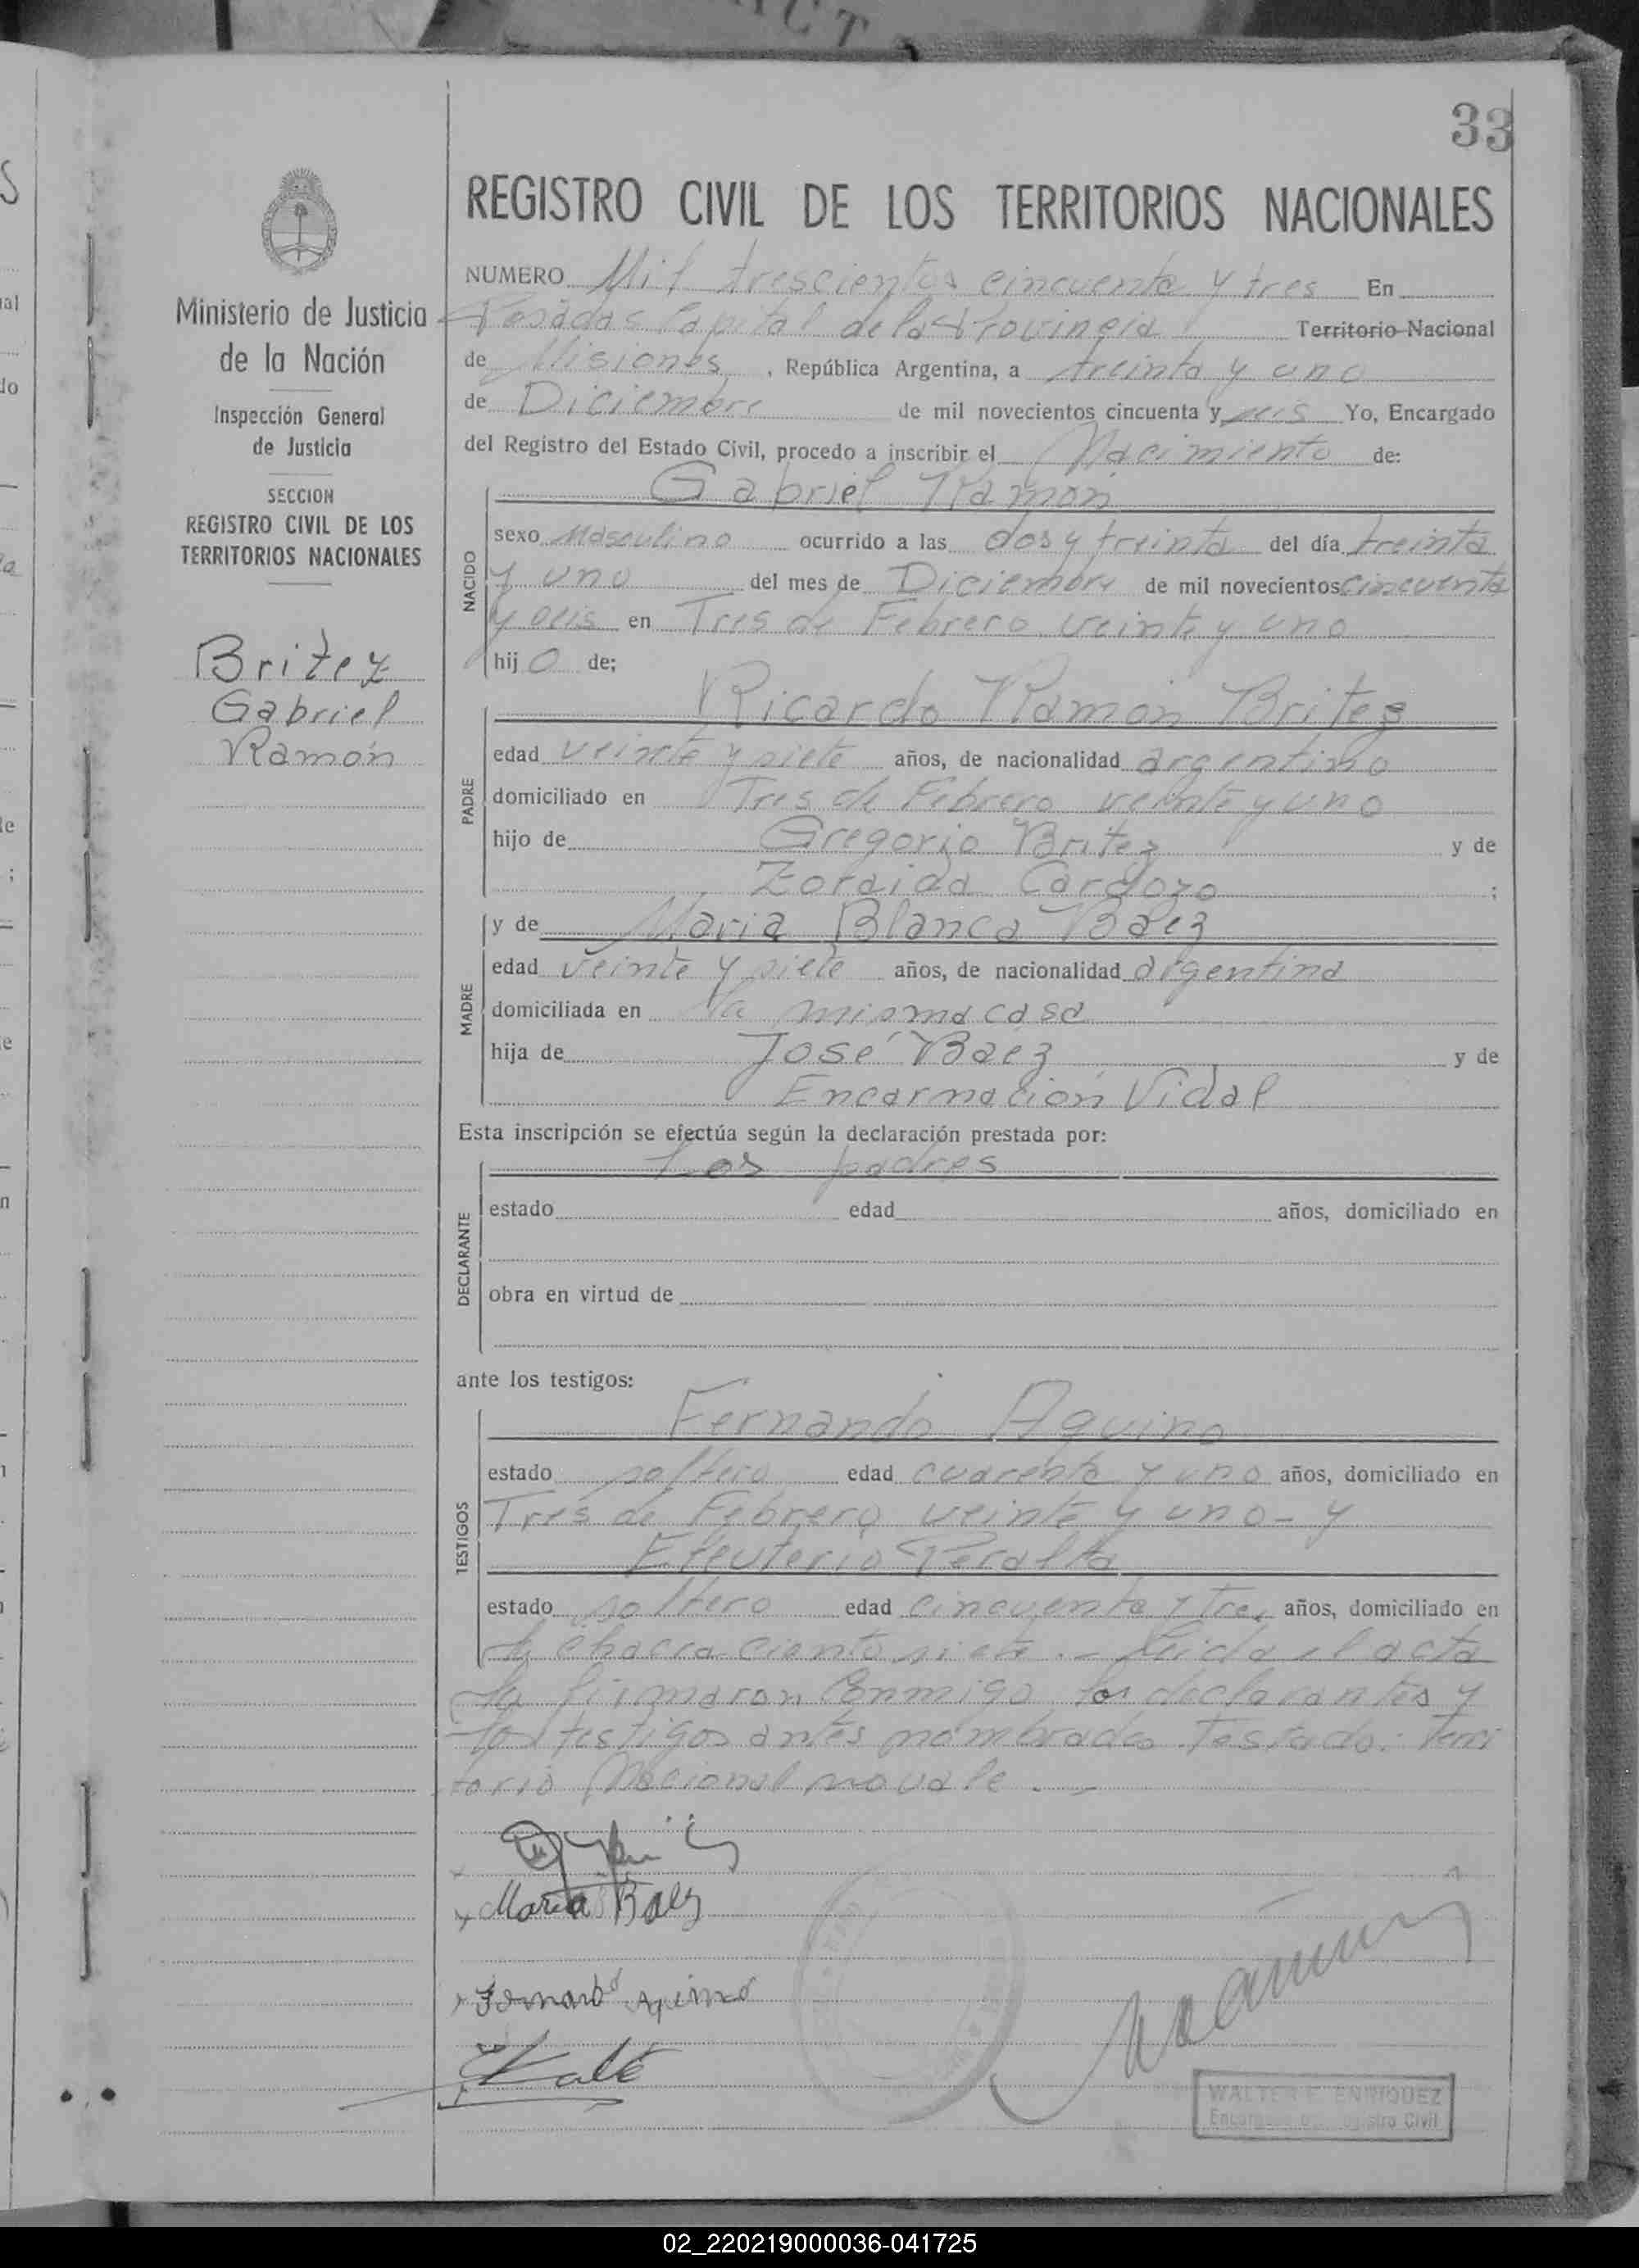 33
REGISTRO CIVIL DE LOS TERRITORIOS NACIONALES
Ministerio de Justicia
de la Nación
Inspección General
de Justicia
SECCION
REGISTRO CIVIL DE LOS
TERRITORIOS NACIONALES
Britez
Gabriel
Ramón
NUMERO Mil trescientos cincuenta y tres En
Posadas Capital de la Provincia Territorio Nacional
de Misiones, República Argentina, a treinta y uno
de Diciembre de mil novecientos cincuenta y seis Yo, Encargado
del Registro del Estado Civil, procedo a inscribir el Nacimiento de:
Gabriel Ramón
NACIDO
sexo Masculino ocurrido a las dos y treinta del día treinta
y uno del mes de Diciembre de mil novecientos cincuenta
y seis en Tres de Febrero veinte y uno
hijo de;
PADRE
Ricardo Ramón Britez
edad veinte y siete años, de nacionalidad argentino
domiciliado en Tres de Febrero veinte y uno
hijo de Gregorio Britez y de
Zoraida Cardozo ;
MADRE
y de Maria Blanca Baez
edad veinte y siete años, de nacionalidad argentina
domiciliada en la misma casa
hija de José Baez y de
Encarnación Vidal
Esta inscripción se efectúa según la declaración prestada por:
Los padres
DECLARANTE
estado edad años, domiciliado en
obra en virtud de
ante los testigos:
TESTIGOS
Fernando Aquino
estado soltero edad cuarenta y uno años, domiciliado en
Tres de Febrero veinte y uno - y
Eleuterio Peralta
estado soltero edad cincuenta y tres años, domiciliado en
la chacra ciento siete . - Leida el acta
la firmaron Conmigo los declarantes y
los testigos antes nombrados. Testado: Terri
torio Nacional no vale . -
Maria Baez
Fernando Aquino
WALTER E. ENRIQUEZ
Encargado del Registro Civil
02_220219000036-041725